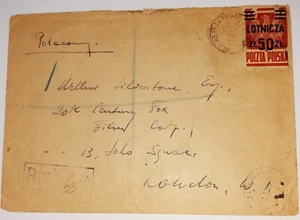 Polecony.
LOTNICZA
zł 50 zł
POCZTA POLSKA
Arthur Silverstone, Esq.,
20th Century Fox
Film Corp.,
13, Soho Square,
London, W. 1.
R
63